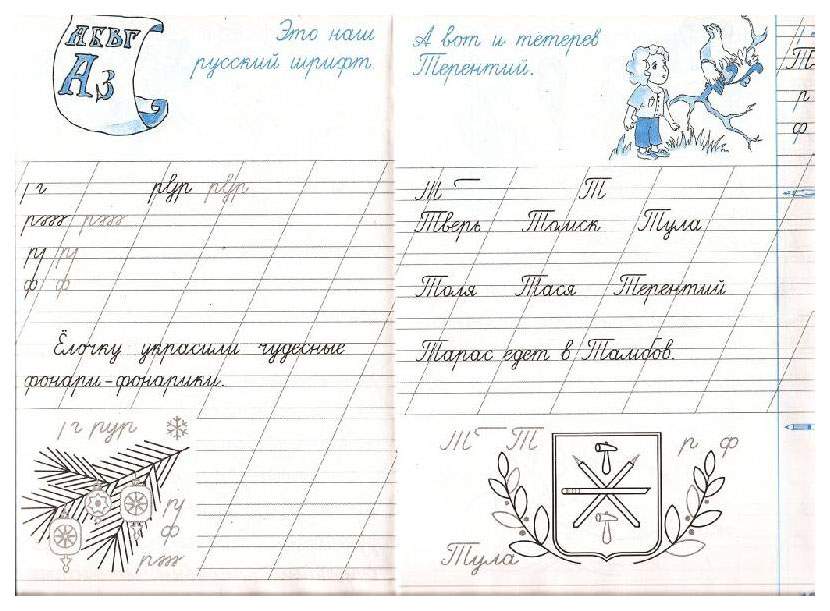 АКВГ
Аз
Это наш
русский шрифт.
г рур рур
ф ф
Ёлочку украсили чудесные
фонари-фонарики.
г рур
ф
А вот и тетерев
Терентий.
Т Т
Тверь Томск Тула
Толя Тася Терентий
Тарас едет в Тамбов.
Т Т р ф
Тула
Т
р
ф